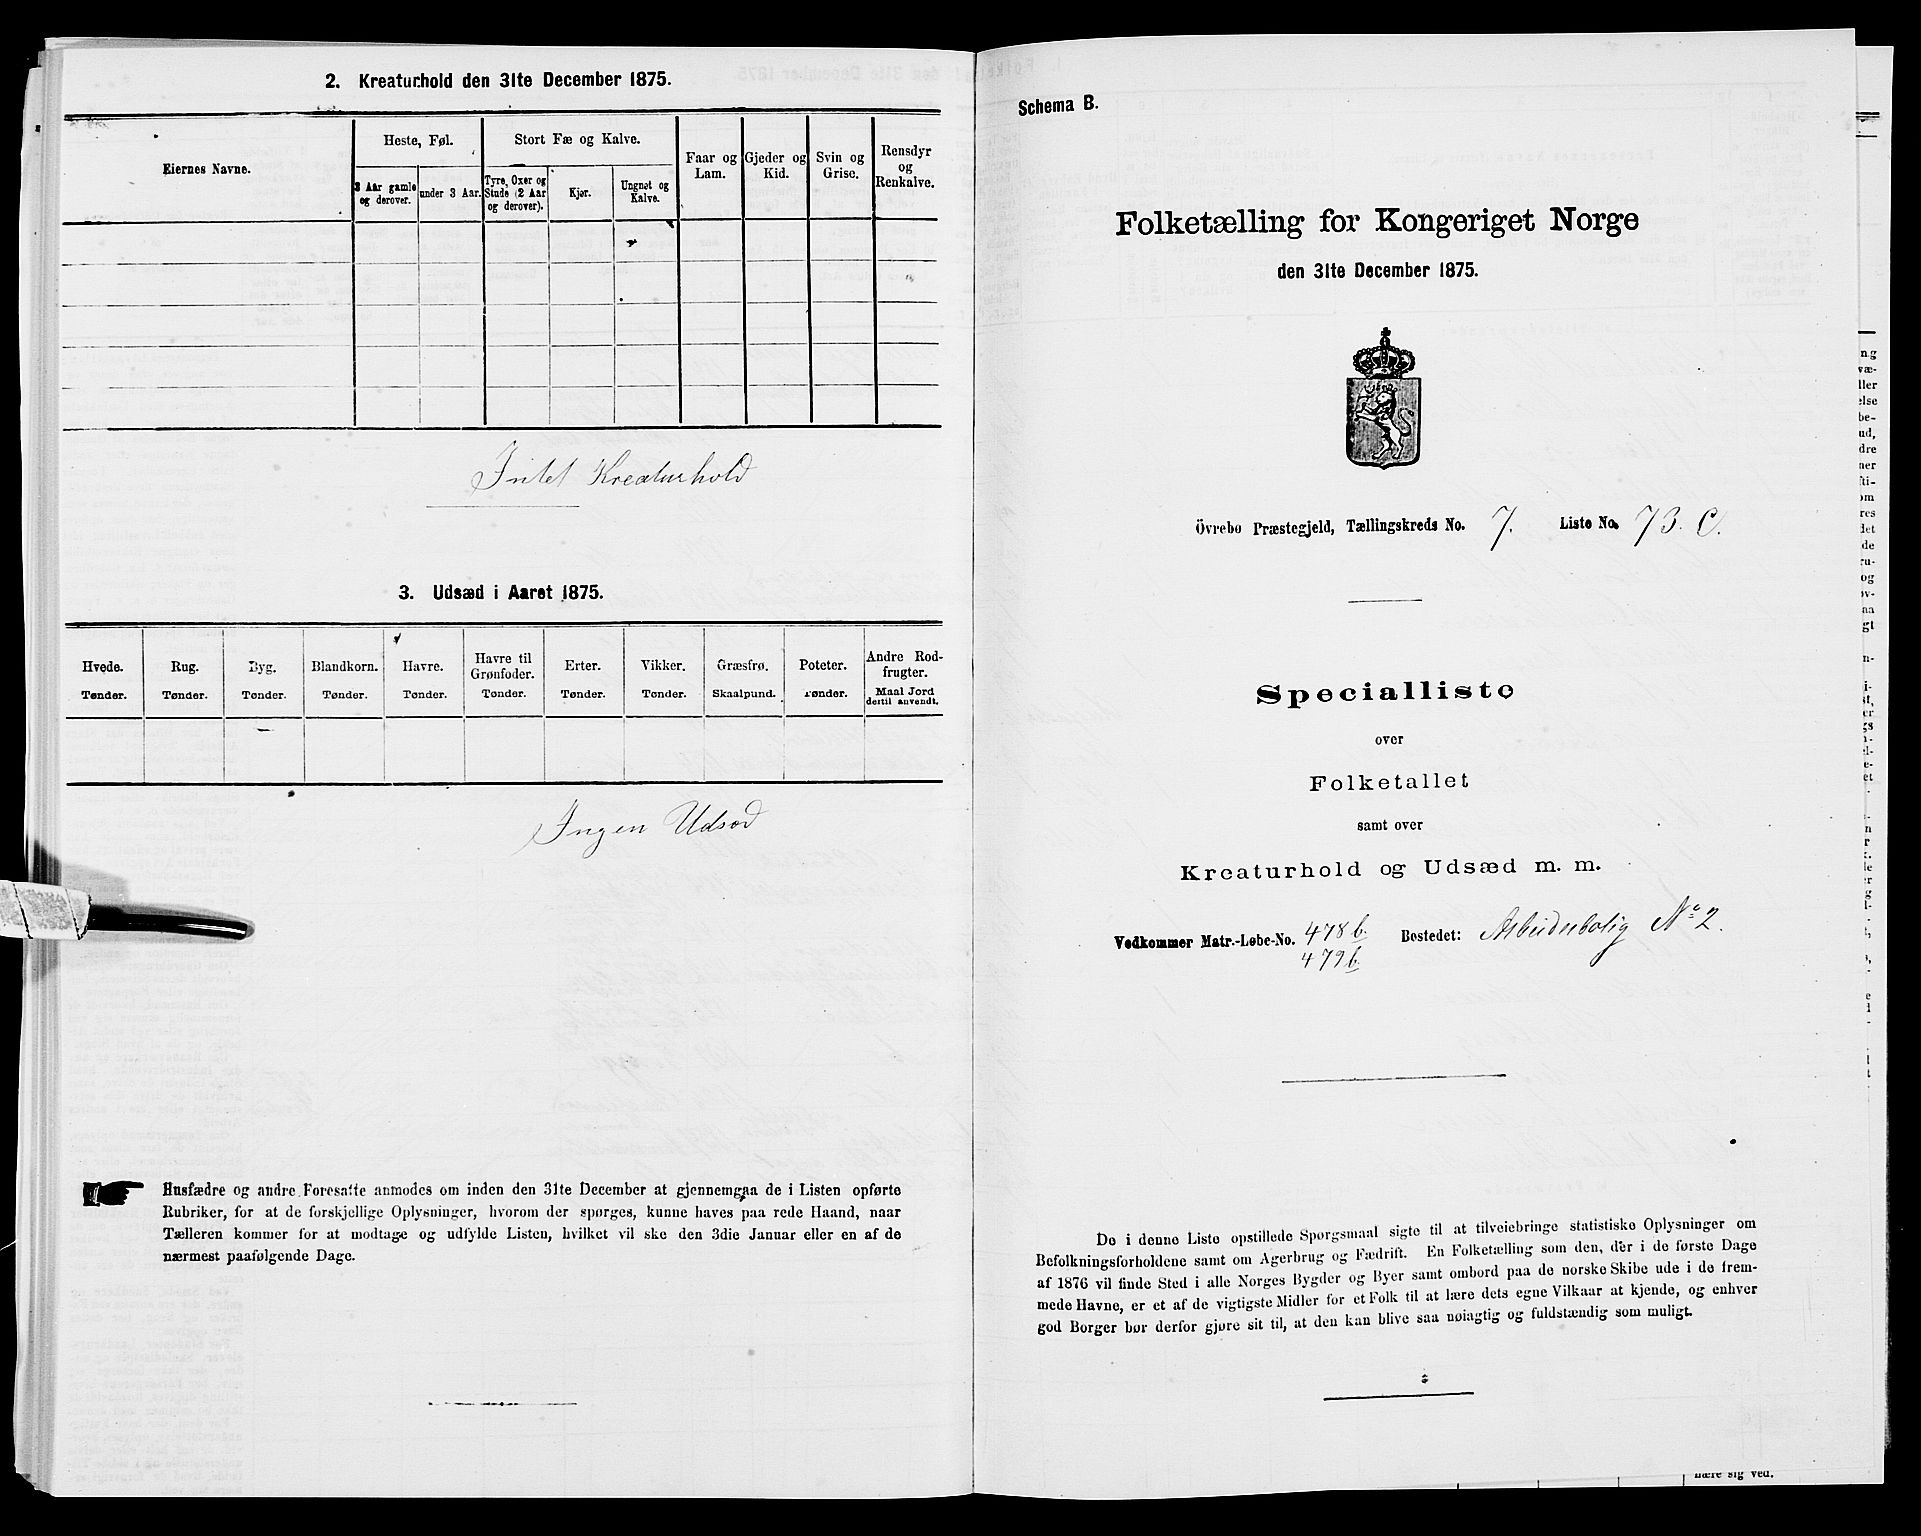 2. Kreaturhold den 31te December 1875.
Eiernes Navne.
Heste, Føl.
Stort Fæ og Kalve.
Faar og Lam.
Gjeder og Kid.
Svin og Grise.
Rensdyr og Renkalve.
3 Aar gamle og derover.
under 3 Aar.
Tyre, Oxer og Stude (2 Aar og derover).
Kjør.
Ungnøt og Kalve.
Intet Kreaturhold
3. Udsæd i Aaret 1875.
Hvede. Tønder.
Rug. Tønder.
Byg. Tønder.
Blandkorn. Tønder.
Havre. Tønder.
Havre til Grønfoder. Tønder.
Erter. Tønder.
Vikker. Tønder.
Græsfrø. Skaalpund.
Poteter. Tønder.
Andre Rodfrugter. Maal Jord dertil anvendt.
Ingen Udsæd
Husfædre og andre Foresatte anmodes om inden den 31te December at gjennemgaa de i Listen opførte
Rubriker, for at de forskjellige Oplysninger, hvorom der spørges, kunne haves paa rede Haand, naar
Tælleren kommer for at modtage og udfylde Listen, hvilket vil ske den 3die Januar eller en af de
nærmest paafølgende Dage.
Schema B.
Folketælling for Kongeriget Norge
den 31te December 1875.
Övrebø Præstegjeld, Tællingskreds No. 7. Liste No. 73. C.
Specialliste
over
Folketallet
samt over
Kreaturhold og Udsæd m. m.
Vedkommer Matr.-Løbe-No. 478b. Bostedet: Arbeiderbolig No 2.
479b.
De i denne Liste opstillede Spørgsmaal sigte til at tilveiebringe statistiske Oplysninger om
Befolkningsforholdene samt om Agerbrug og Fædrift. En Folketælling som den, der i de første Dage
af 1876 vil finde Sted i alle Norges Bygder og Byer samt ombord paa de norske Skibe ude i de frem-
mede Havne, er et af de vigtigste Midler for et Folk til at lære dets egne Vilkaar at kjende, og enhver
god Borger bør derfor gjøre sit til, at den kan blive saa nøiagtig og fuldstændig som muligt.
nære sig ved.